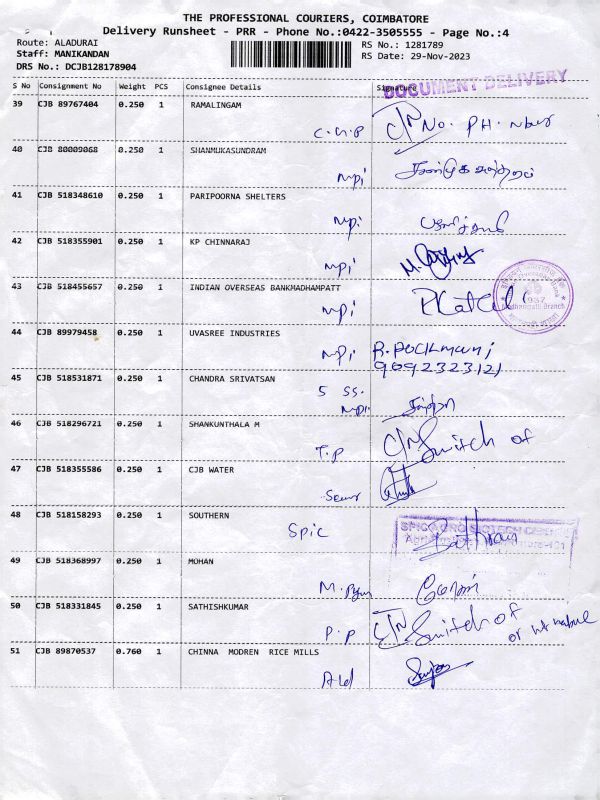 THE PROFESSIONAL COURIERS, COIMBATORE
Delivery Runsheet - PRR - Phone No.:0422-3505555 - Page No.:4
Route: ALADURAI
RS No.: 1281789
Staff: MANIKANDAN
RS Date: 29-Nov-2023
DRS No.: DCJB128178904
DOCUMENT DELIVERY
S No Consignment No Weight PCS Consignee Details Signature
39 CJB 89767404 0.250 1 RAMALINGAM
C/N No. PH.
40 CJB 80009068 0.250 1 SHANMUKASUNDRAM
mpi
41 CJB 518348610 0.250 1 PARIPOORNA SHELTERS
mpi
42 CJB 518355901 0.250 1 KP CHINNARAJ
mpi
43 CJB 518455657 0.250 1 INDIAN OVERSEAS BANKMADHAMPATT
mpi
1937
44 CJB 89979458 0.250 1 UVASREE INDUSTRIES
mpi
9092323121
45 CJB 518531871 0.250 1 CHANDRA SRIVATSAN
5 SS.
mpi
46 CJB 518296721 0.250 1 SHANKUNTHALA M
T.P C/N Switch of
47 CJB 518355586 0.250 1 CJB WATER
48 CJB 518158293 0.250 1 SOUTHERN
Spic
49 CJB 518368997 0.250 1 MOHAN
மோகன்
50 CJB 518331845 0.250 1 SATHISHKUMAR
P.P C/N Switch of
51 CJB 89870537 0.760 1 CHINNA MODREN RICE MILLS
Ald